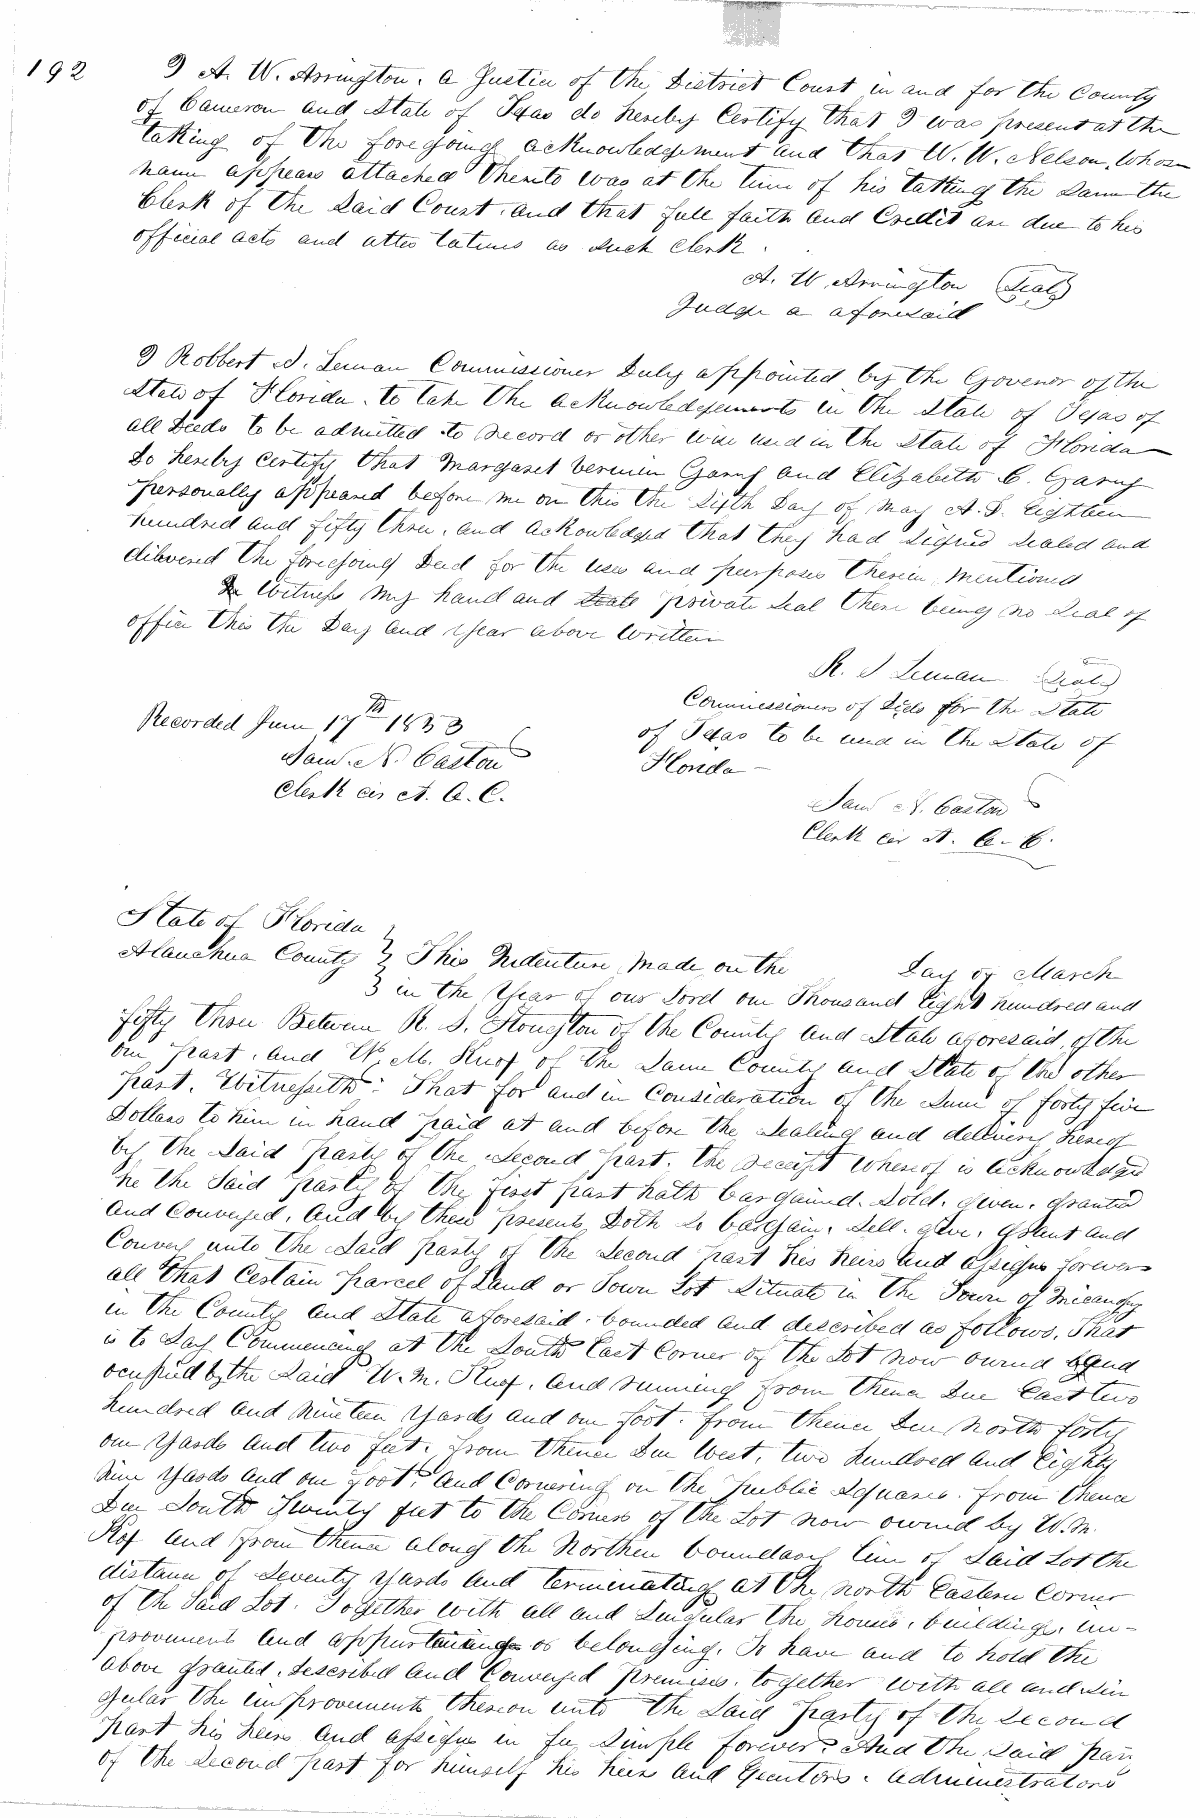 192
I A. W. Arrington. a Justice of the District Court in and for the County
of Cameron and State of Texas do hereby Certify that I was present at the
taking of the foregoing acknowledgement and that W. W. Nelson, whose
name appears attached thereto was at the time of his taking the same the
Clerk of the Said Court. and that full faith and Credit are due to his
official acts and attestations as such clerk.
A. W. Arrington (Seal)
Judge a aforesaid
I Robbert S. Leman Commissioner Duly appointed by the Govenor of the
State of Florida. to take the acknowledgements in the State of Texas of
all Deeds to be admitted to record or other wise used in the State of Florida
Do hereby certify that Margaret Garny and Elizabeth C. Garny
personally appeared before me on this the Sixth Day of May A.D. Eighteen
hundred and fifty three. and acknowledged that they had Signed Sealed and
delivered the foregoing Deed for the uses and purposes therein mentioned
Witness my hand and private Seal there being no Seal of
office this the Day and year above written
R. S Leman (Seal)
Commissioners of Deeds for the State
of Texas to be used in the State of
Florida
Recorded June 17th 1853
Sam. N. Caston
Clerk cir ct. A. C.
Sam N. Caston
Clerk cir ct. A. C.
State of Florida
Alauchua County } This Indenture made on the Day of March
in the Year of our Lord one Thousand Eight hundred and
fifty three Between R. S. Stoughton of the County and State aforesaid, of the
one part. and W. M. Knox of the Same County and State of the other
part. Witnesseth: That for and in Consideration of the Sum of forty five
Dollars to him in hand paid at and before the Sealing and delivery hereof
by the Said party of the Second part. the receipt whereof is acknowledged
he the Said party of the first part hath bargained. Sold. given. granted
and Conveyed. and by these presents Doth so bargain. Sell. give. grant and
Convey unto the Said party of the Second part his heirs and assigns forever
all that Certain parcel of Land or Town Lot Situate in the Town of Micanopy
in the County and State aforesaid. bounded and described as follows. That
is to Say Commencing at the South East Corner of the Lot now owned and
ocupied by the Said W. M. Knox. and running from thence Due East two
hundred and nineteen Yards and one foot. from thence Due North forty
one Yards and two feet. from thence Due West, two hundred and Eighty
nine Yards and one foot. and Cornering on the public Square. from thence
Due South Twenty feet to the Corner of the Lot now owned by W. M.
Knox and from thence along the Northen boundary line of Said Lot the
distance of Seventy Yards and terminating at the North Eastern Corner
of the Said Lot. Together with all and Singular the houses, buildings, im-
provements and appurtainings or belonging. To have and to hold the
above granted, described and Conveyed premises. together with all and Sin
gular the improvements thereon unto the Said party of the Second
part his heirs and assigns in fee Simple forever. And the Said par
of the Second part for himself his heirs and Executors. administrators